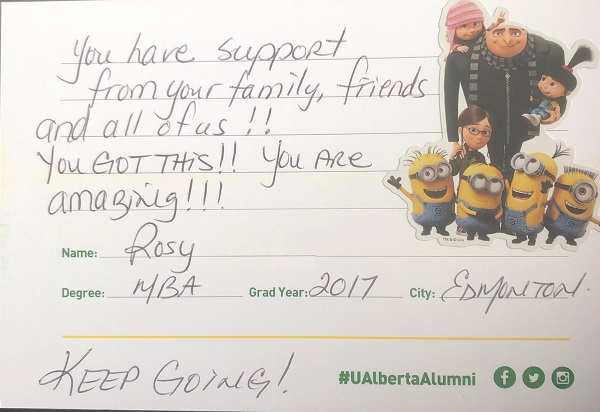 You have support
from your family, friends
and all of us !!
YOU GOT THIS!! You ARE
amazing!!!
Name: Rosy
Degree: MBA Grad Year: 2017 City: EDMONTON.
KEEP GOING! #UAlbertaAlumni